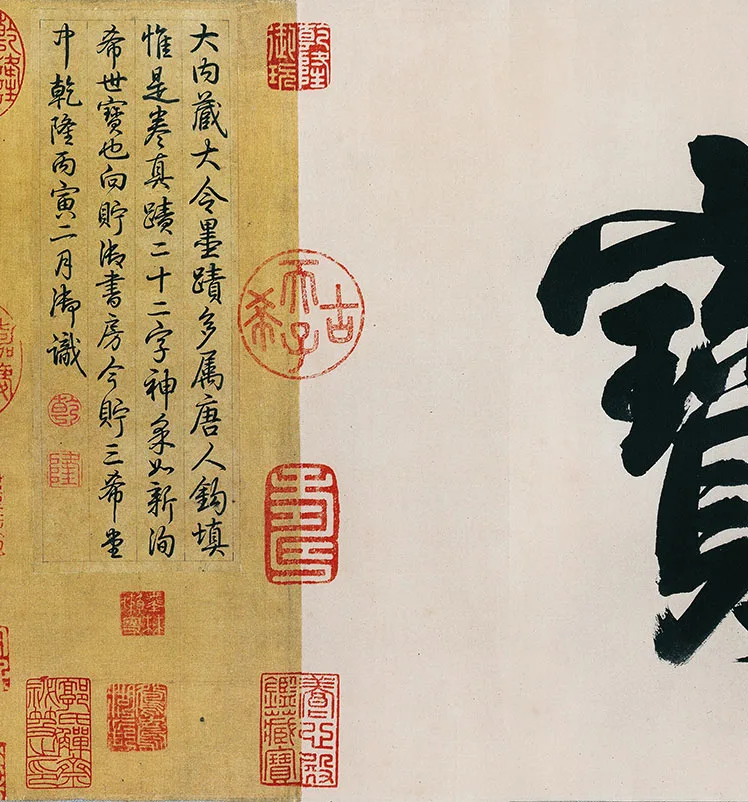 寶
乾隆御玩
古希天子
養心殿鑑藏寶
大内藏大令墨蹟多属唐人鉤填
惟是卷真蹟二十二字神采如新洵
希世寶也向貯御書房今貯三希堂
中乾隆丙寅二月御識
乾
隆